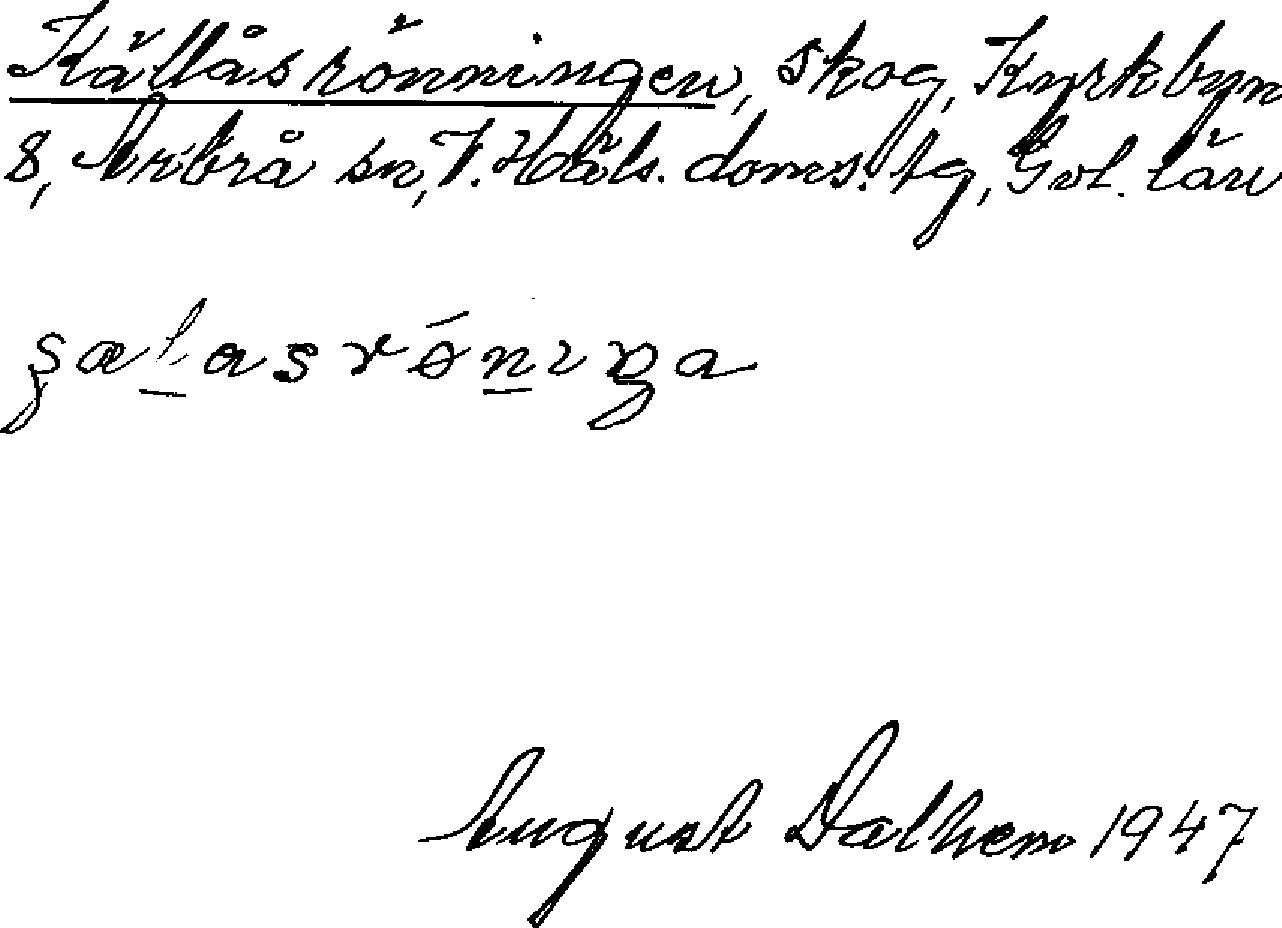 Källåsrönningen, skog, Kyrkbyn
8, Arbrå sn, V. Häls. doms. tg, Gvl. län
August Dalhem 1947